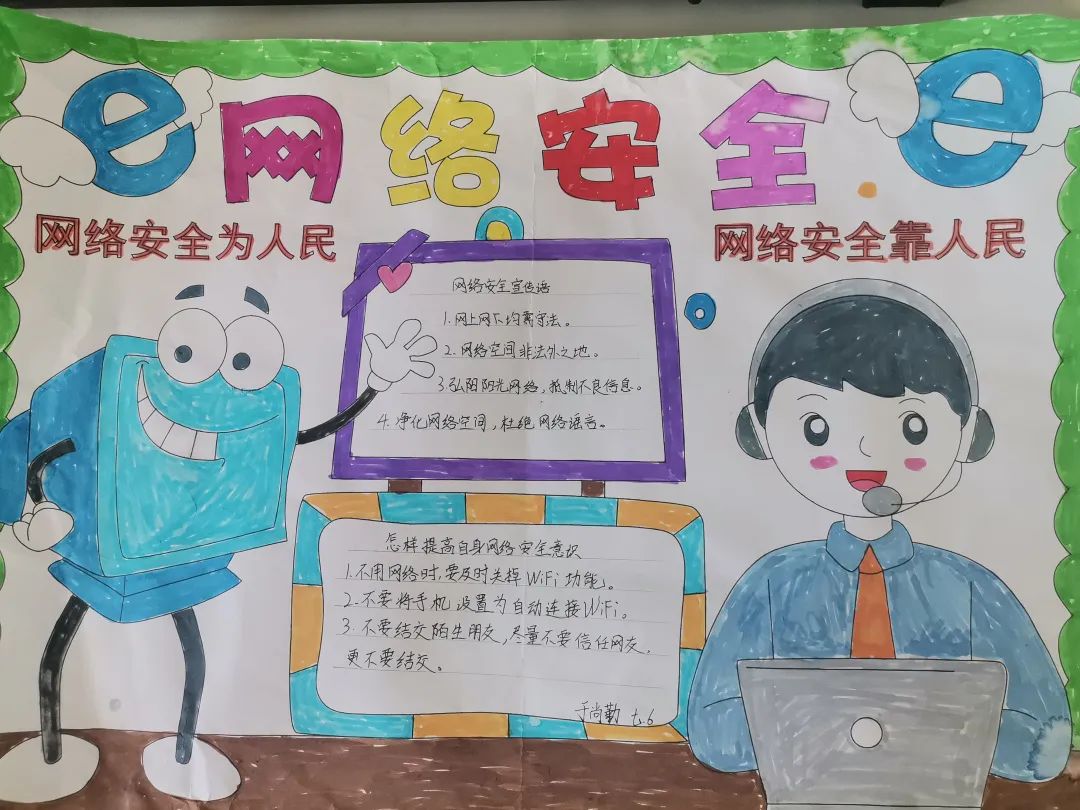 e 网络安全 e
网络安全为人民
网络安全靠人民
网络安全宣传语
1.网上网下均需守法。
2.网络空间非法外之地。
3.弘阳阳光网络,抵制不良信息。
4.净化网络空间,杜绝网络谣言。
怎样提高自身网络安全意识
1.不用网络时,要及时关掉WiFi功能。
2.不要将手机设置为自动连接WiFi。
3.不要结交陌生朋友,尽量不要信任网友,
更不要结交。
于尚勤 七.6